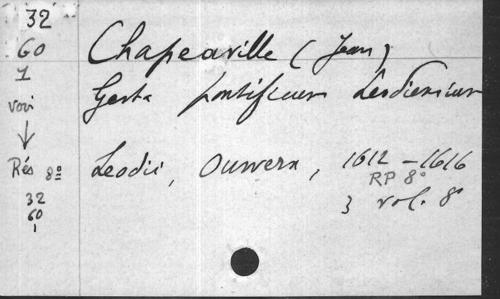 32
60
1
voir
↓
Rés 8º
32
60
1
Chapeaville (Jean)
Gesta pontificum Leodiensium
Leodii, Ouwerx, 1612-1616
RP 8º
3 vol. 8º